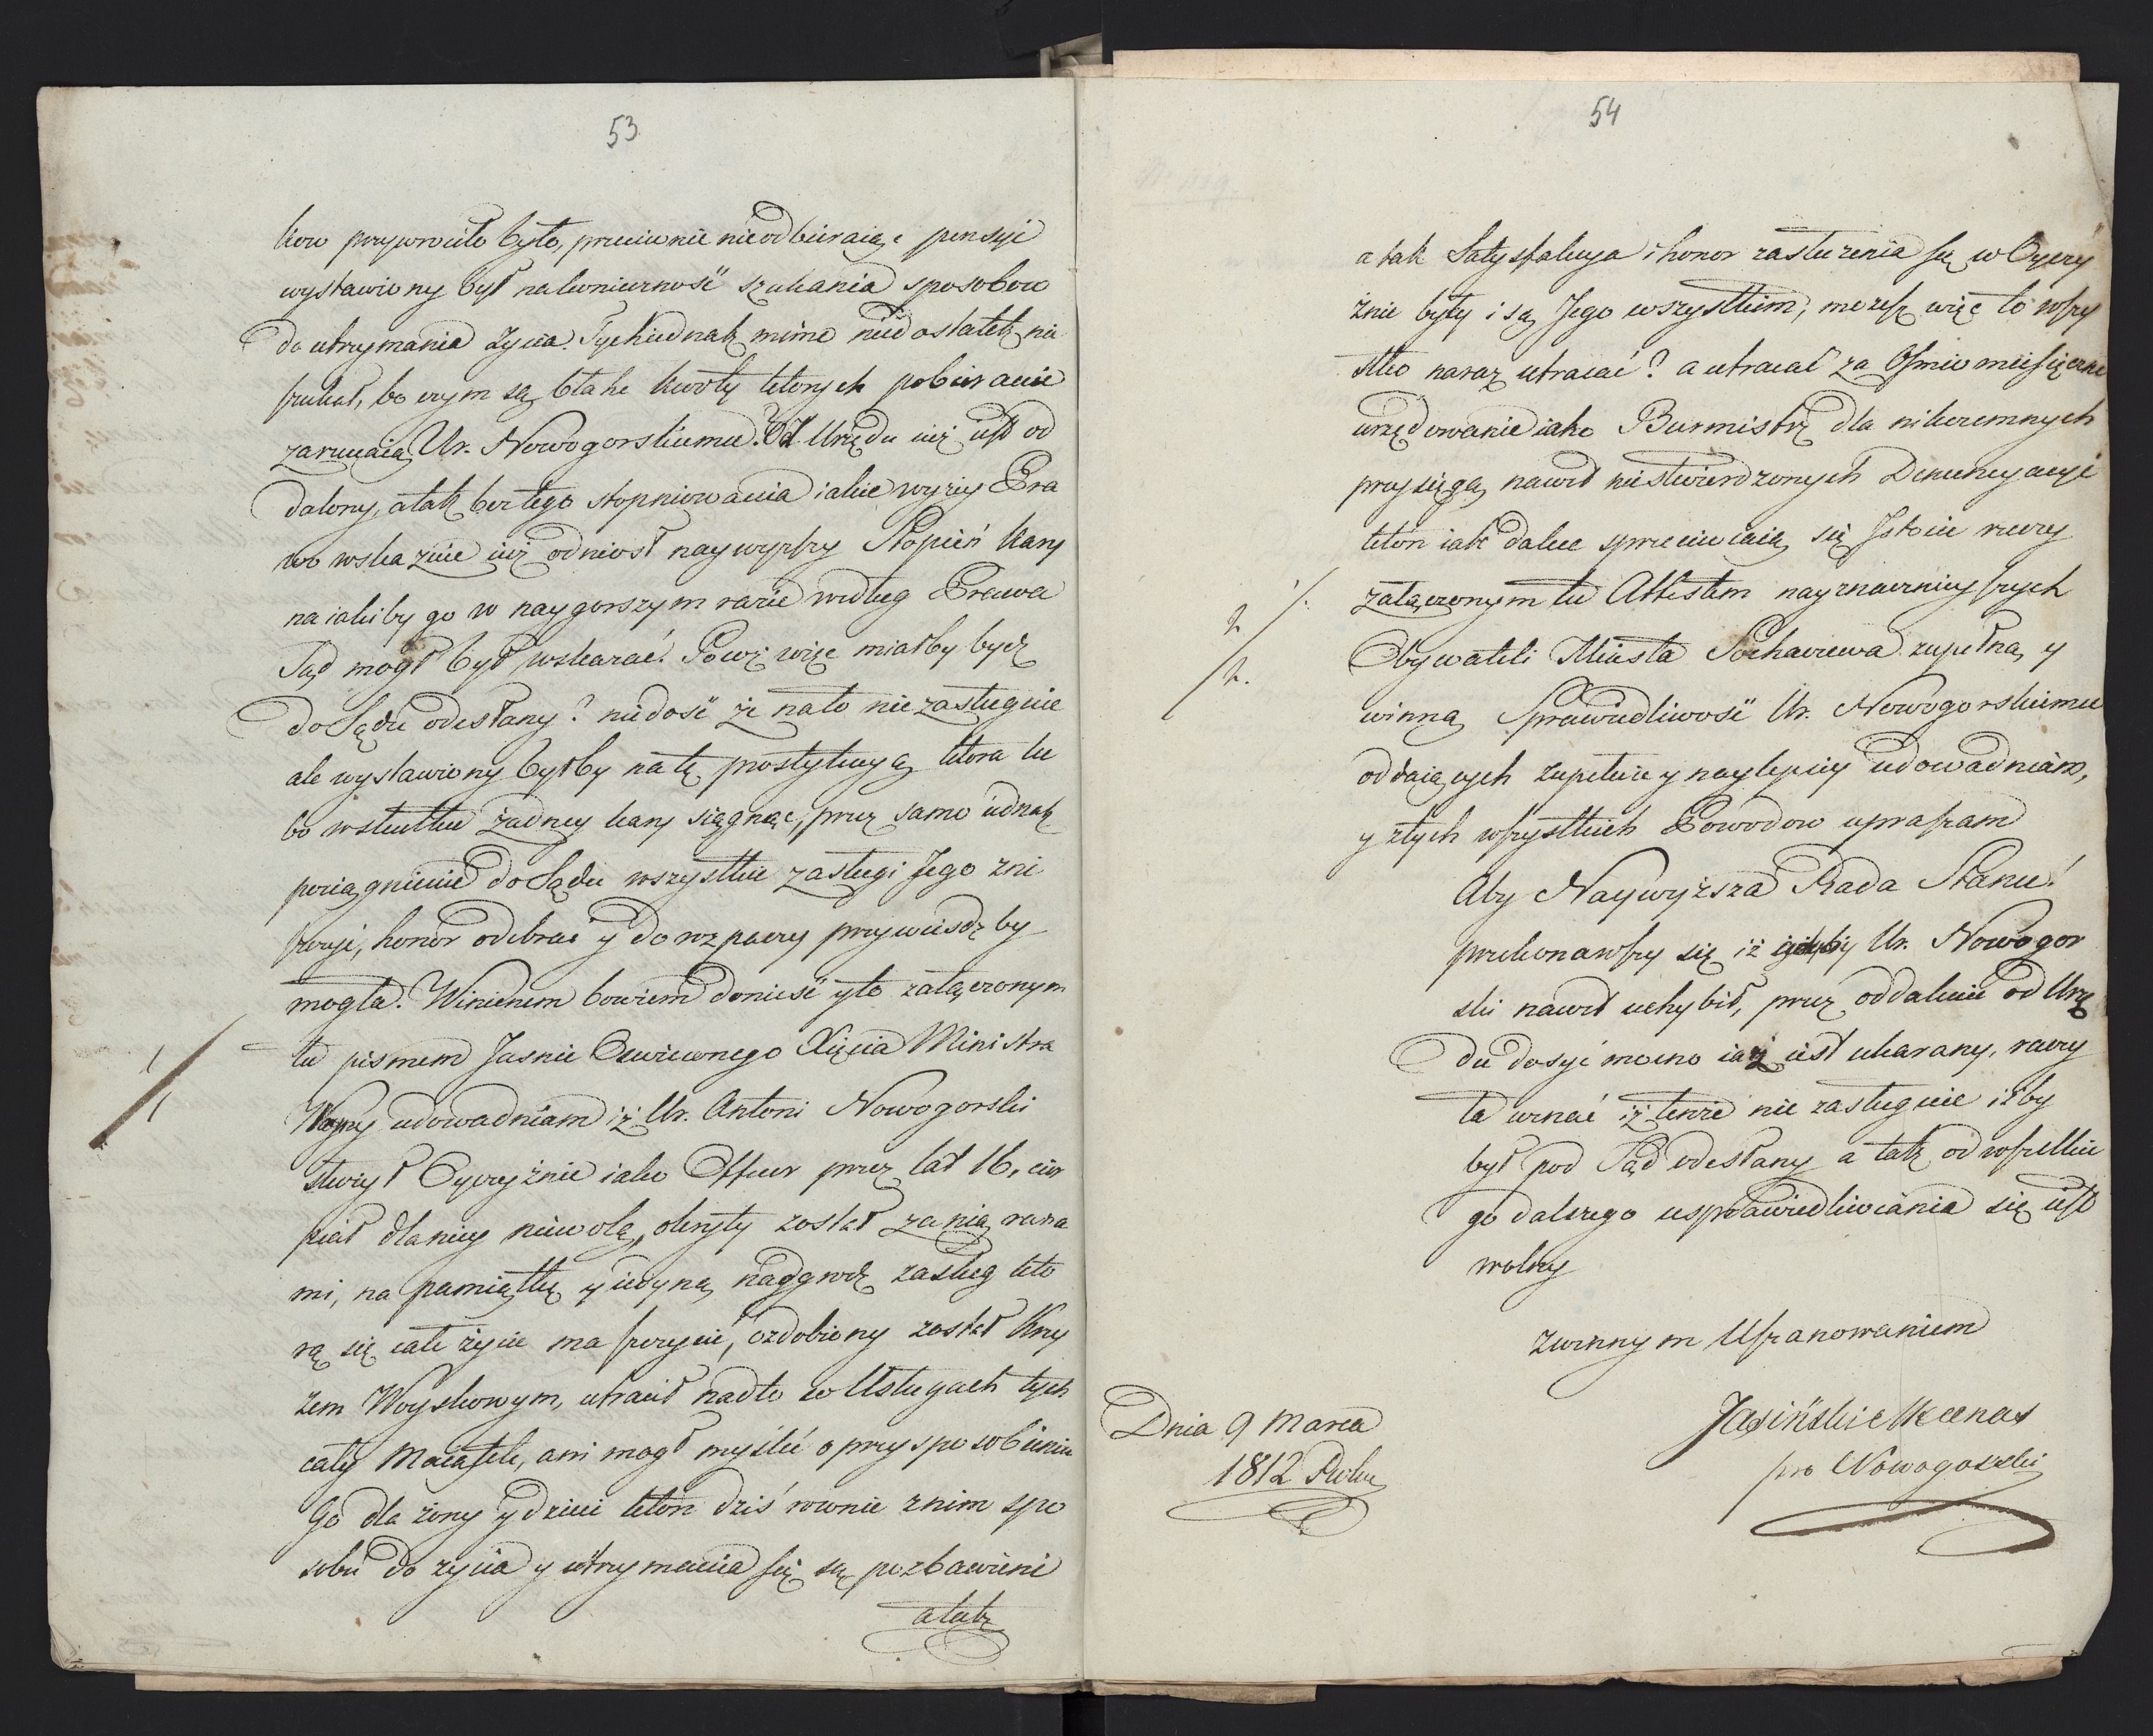 53
kow przywrociło było, przeciwnie nieodbieraiąc pensyi
wystawiony był na konieczność szukania sposobow
do utrzymania życia. Tych iednak mimo niedostatek nie
szukał, bo czym są błahe kwoty ktorych pobieranie
zarzucaią Ur. Nowogorskiemu? Od Urzędu iuż iest od
dalony, a tak bez tego stopniowania iakie wyżey Pra
wo wskazuie iuż odniosł naywyższy Stopień kary
na iakiby go w naygorszym razie według Prawa
Sąd mogł był wskazać! Pocoż więc miałby bydź
do Sądu odesłany? niedość że na to nie zasługuie
ale wystawiony byłby na tę prostytucyą ktora tu
bo w skutku żadney kary siągnąć, przez samo iednak
pociągnienie do Sądu wszystkie zasługi Jego zni
szczyć, honor odebrać y do rozpaczy przywieśdź by
mogła. Winienem bowiem donieść y to załączonym
tu pismem Jasnie Oswieconego Xięcia Ministra
Woyny udowadniam iż Ur. Antoni Nowogorski
służył Oyczyźnie iako Officer przez lat 16, cier
piał dla niey niewolą, okryty został za nią rana
mi, na pamiątkę y iedyną nadgrodę zasług kto
rą się całe życie ma szczycić, ozdobiony został Krzy
żem Woyskowym, utracił nadto w Usługach tych
cały Maiątek, ani mogł myślić o przysposobieniu
Go dla żony y dzieci ktore dziś rownie z nim spo
sobu do życia y utrzymania się są pozbawieni
a tak
54
a tak Satysfakcya i honor zasłużenia się w Oyczy
źnie były i są Jego wszystkim; możesz więc to wszy
stko naraz utracać? a utracać za Ośmiomiesięczne
urzędowanie iako Burmistrz dla nikczemnych
przysięgą nawet niestwierdzonych Denuncyacyi
ktore iak dalece sprzeciwiaią się Jstocie rzeczy
załączonym tu Attestem nayznacznieyszych
Obywateli Miasta Sochaczewa zupełną y
winną Sprawiedliwość Ur. Nowogorskiemu
oddaiących zupełnie y naylepiey udowadniam,
y z tych wszystkich Powodow upraszam
Aby Naywyższa Rada Stanu!
przekonawszy się iż gdyby Ur. Nowogor
ski nawet uchybił, przez oddalenie od Urzę
du dosyć mocno iuż iest ukarany, raczy
ła uznać iż tenże nie zasługuie iżby
był pod Sąd odesłany a tak od wszelkie
go dalszego usprawiedliwiania się iest
wolny
z winnym Uszanowaniem
Dnia 9 Marca
1812 Roku
Jasiński Mecenas
pro Nowogorski